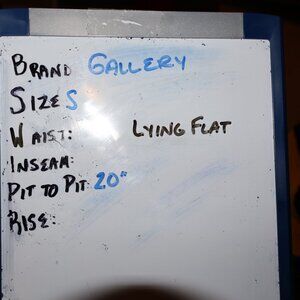 BRAND GALLERY
SIZE S
WAIST: LYING FLAT
INSEAM:
PIT TO PIT: 20"
RISE: